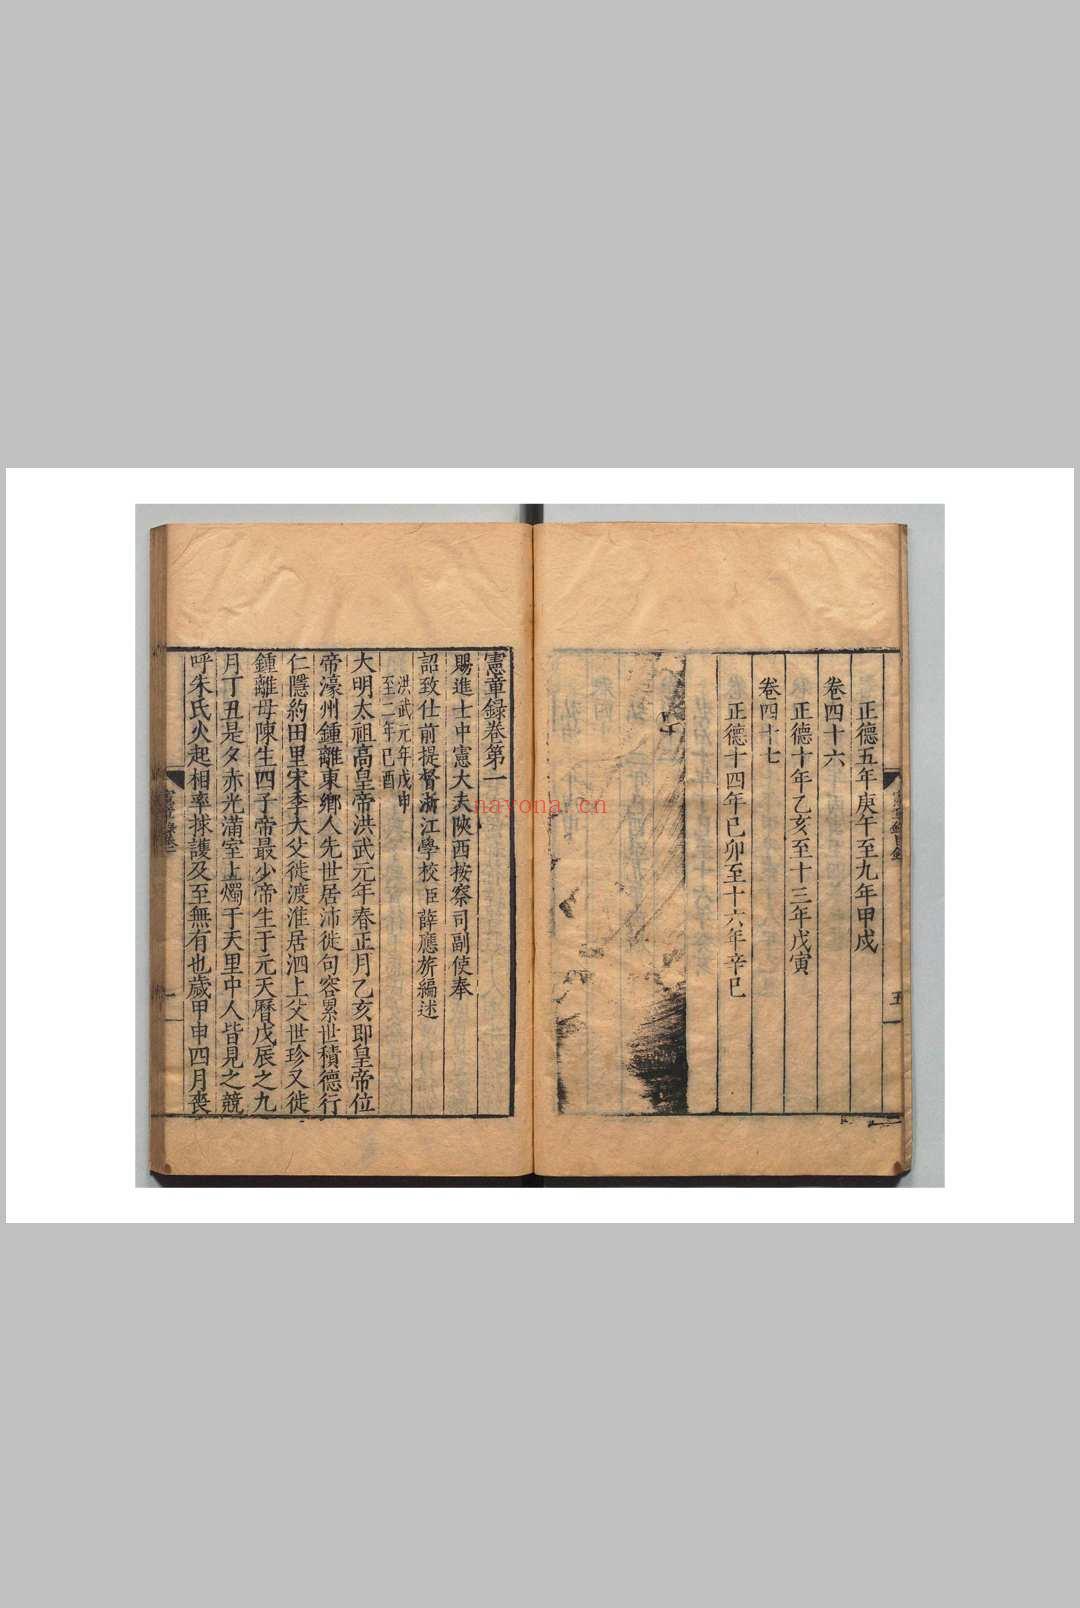 正德五年庚午至九年甲戌
卷四十六
正德十年乙亥至十三年戊寅
卷四十七
正德十四年己卯至十六年辛巳
五
憲章錄卷第一
賜進士中憲大夫陝西按察司副使奉
詔致仕前提督浙江學校臣薛應旂編述
洪武元年戊申
至二年己酉
大明太祖高皇帝洪武元年春正月乙亥即皇帝位
帝濠州鍾離東鄉人先世居沛徙句容累世積德行
仁隱約田里宋季大父徙渡淮居泗上父世珍又徙
鍾離母陳生四子帝最少帝生于元天曆戊辰之九
月丁丑是夕赤光滿室上燭于天里中人皆見之競
呼朱氏火起相率捄護及至無有也歲甲申四月喪
憲章錄卷一
一
nayona.cn